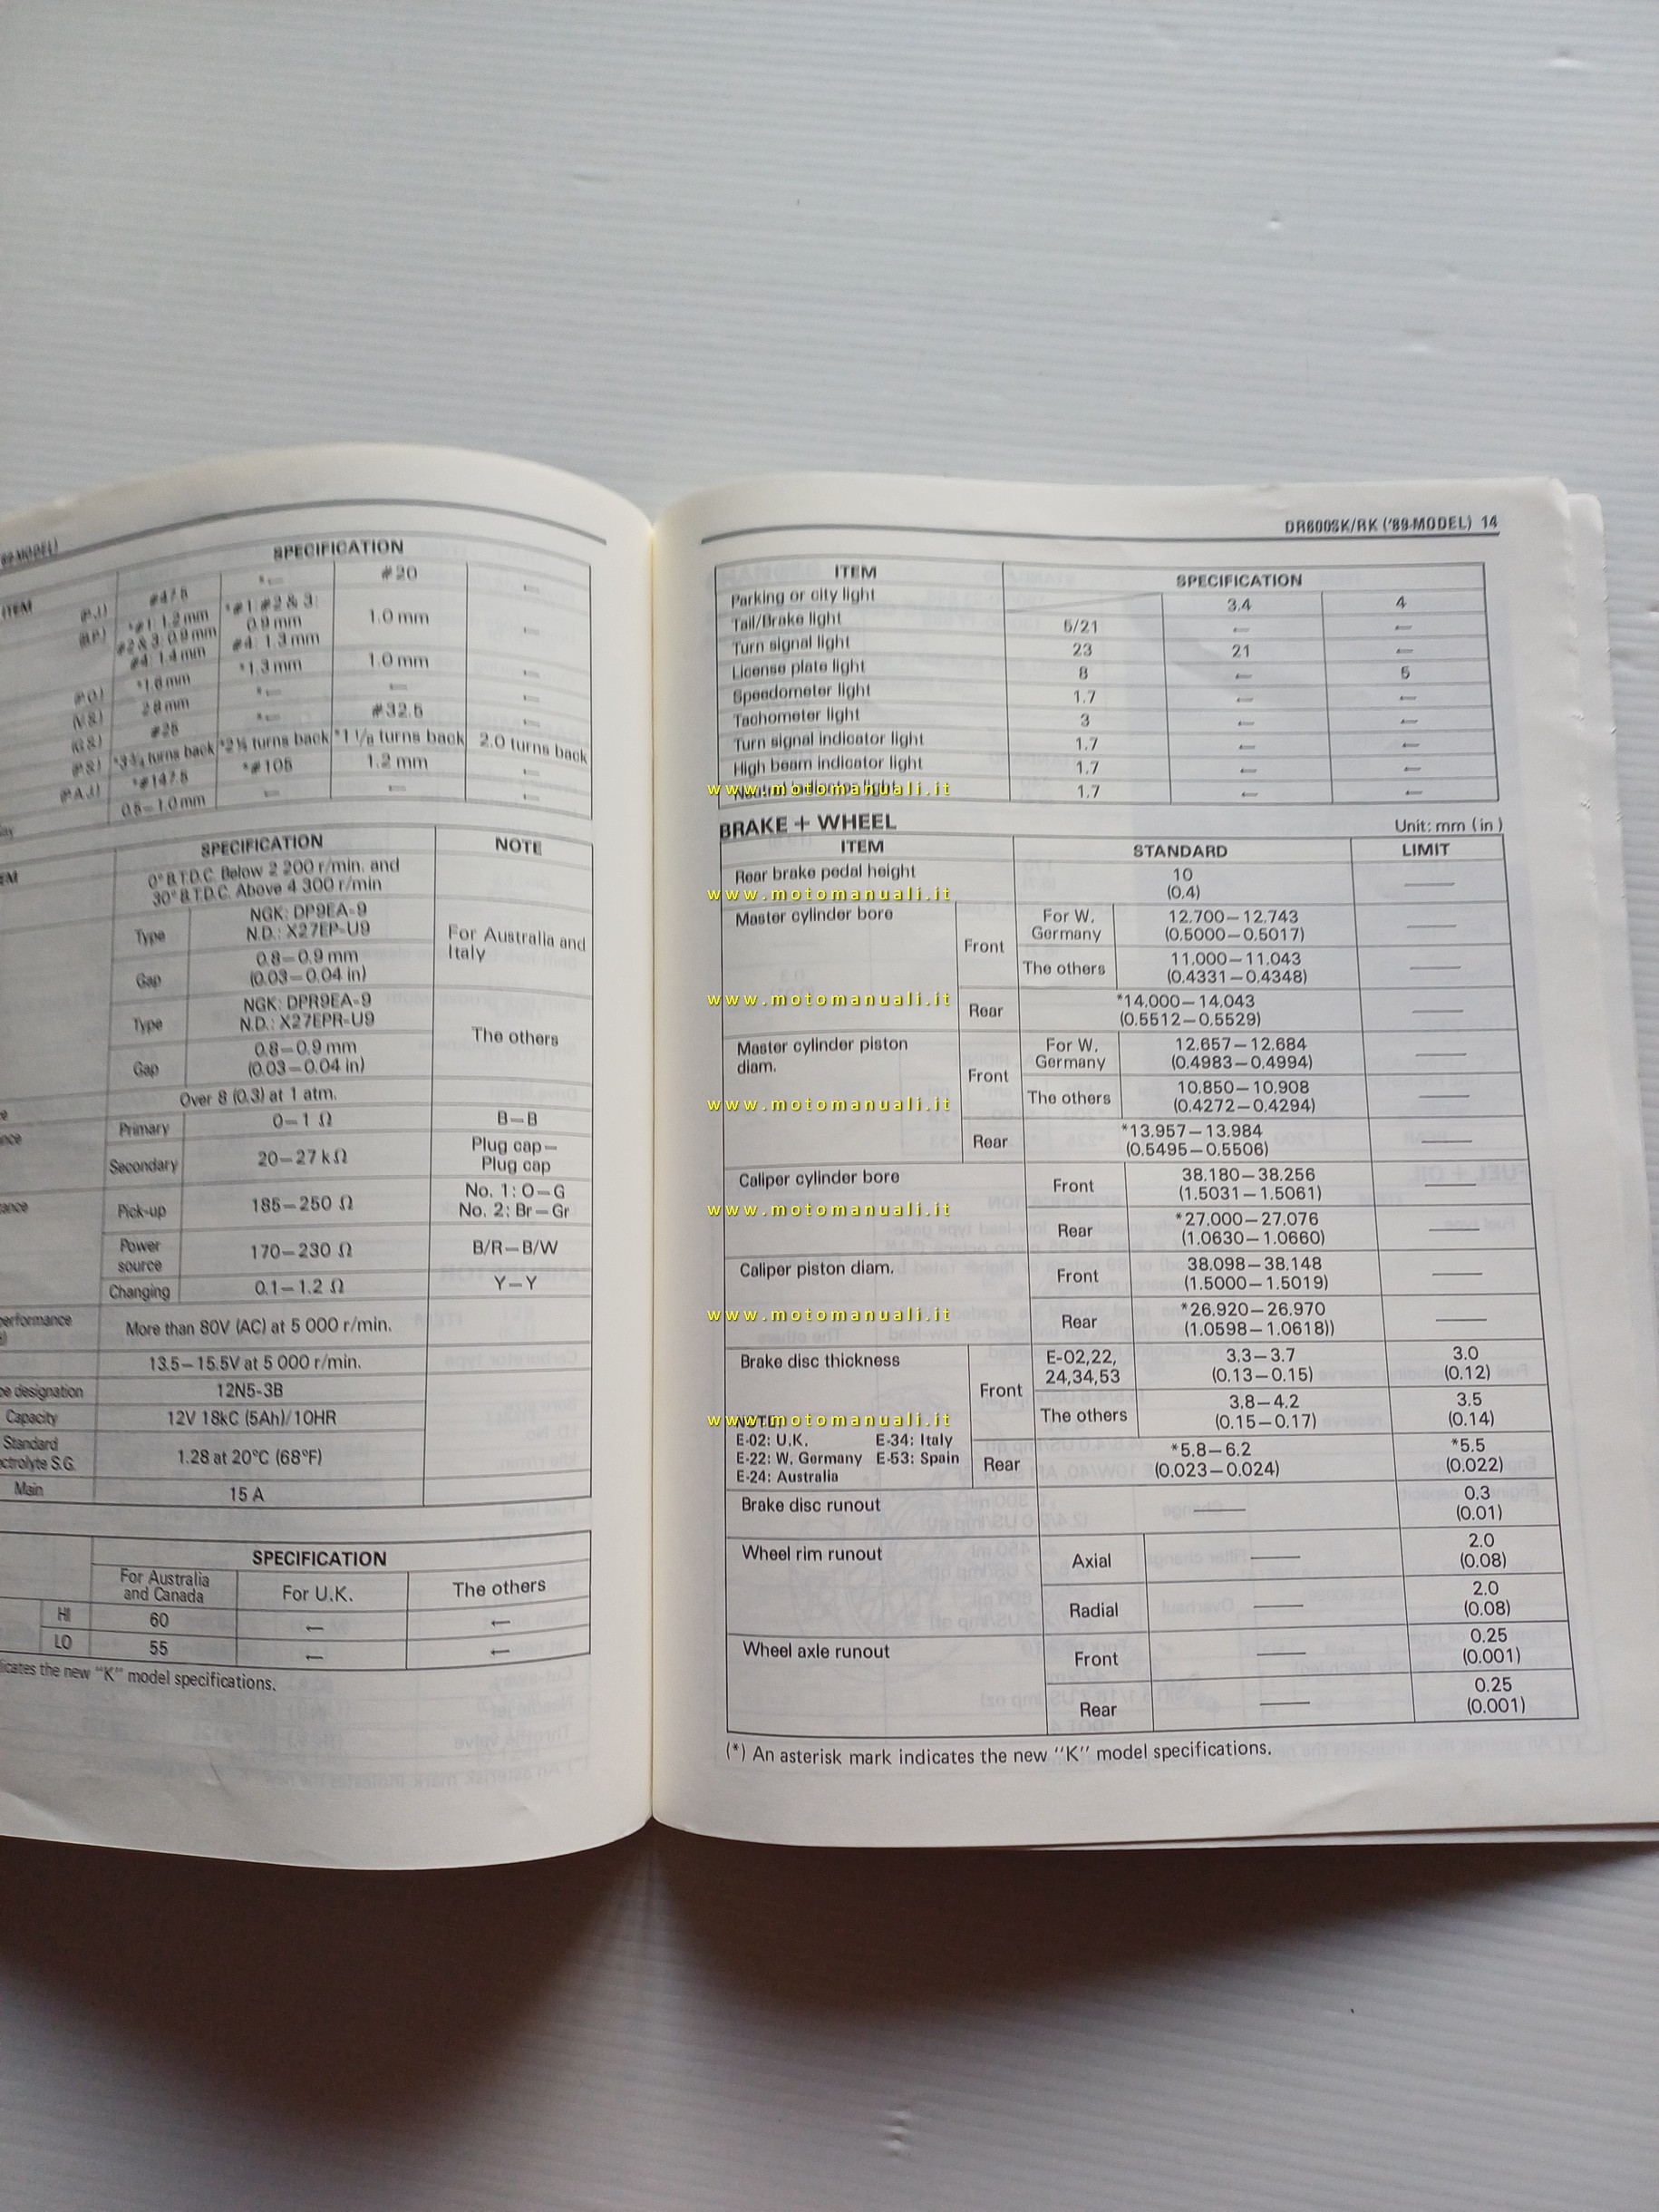 '89-MODEL)
SPECIFICATION
ITEM
(P.J.) #47.5 *← #20 ←
(B.P.) *#1: 1.2 mm *#1: #2 & 3: 1.0 mm ←
#2 & 3: 0.9 mm 0.9 mm
#4: 1.4 mm #4: 1.3 mm
(P.O.) *1.6 mm *1.3 mm 1.0 mm ←
(V.S.) 2.8 mm *← ← ←
(G.S.) #25 *← #32.5 ←
(P.S.) turns back turns back *1 1/8 turns back 2.0 turns back
(P.A.J.) *#147.5 *#105 1.2 mm ←
0.5–1.0 mm ← ← ←
SPECIFICATION NOTE
0° B.T.D.C. Below 2 200 r/min. and
30° B.T.D.C. Above 4 300 r/min
Type NGK: DP9EA-9
N.D.: X27EP-U9
For Australia and
Italy
Gap 0.8–0.9 mm
(0.03–0.04 in)
Type NGK: DPR9EA-9
N.D.: X27EPR-U9
The others
Gap 0.8–0.9 mm
(0.03–0.04 in)
Over 8 (0.3) at 1 atm.
Primary 0–1 Ω B–B
Secondary 20–27 kΩ Plug cap–
Plug cap
Pick-up 185–250 Ω No. 1: O–G
No. 2: Br–Gr
Power
source 170–230 Ω B/R–B/W
Changing 0.1–1.2 Ω Y–Y
performance More than 80V (AC) at 5 000 r/min.
13.5–15.5V at 5 000 r/min.
designation 12N5-3B
Capacity 12V 18kC (5Ah)/10HR
Standard
S.G. 1.28 at 20°C (68°F)
Main 15 A
SPECIFICATION
For Australia
and Canada For U.K. The others
HI 60 ← ←
LO 55 ← ←
the new "K" model specifications.
DR600SK/RK ('89-MODEL) 14
ITEM SPECIFICATION
Parking or city light 3.4 4
Tail/Brake light 5/21 ← ←
Turn signal light 23 21 ←
License plate light 8 ← 5
Speedometer light 1.7 ← ←
Tachometer light 3 ← ←
Turn signal indicator light 1.7 ← ←
High beam indicator light 1.7 ← ←
Neutral indicator light 1.7 ← ←
www.motomanuali.it
BRAKE + WHEEL Unit: mm (in)
ITEM STANDARD LIMIT
Rear brake pedal height 10
(0.4) ——
www.motomanuali.it
Master cylinder bore Front For W.
Germany 12.700–12.743
(0.5000–0.5017) ——
The others 11.000–11.043
(0.4331–0.4348) ——
www.motomanuali.it
Rear *14.000–14.043
(0.5512–0.5529) ——
Master cylinder piston
diam. Front For W.
Germany 12.657–12.684
(0.4983–0.4994) ——
The others 10.850–10.908
(0.4272–0.4294) ——
www.motomanuali.it
Rear *13.957–13.984
(0.5495–0.5506) ——
Caliper cylinder bore Front 38.180–38.256
(1.5031–1.5061) ——
www.motomanuali.it
Rear *27.000–27.076
(1.0630–1.0660) ——
Caliper piston diam. Front 38.098–38.148
(1.5000–1.5019) ——
www.motomanuali.it
Rear *26.920–26.970
(1.0598–1.0618)) ——
Brake disc thickness Front E-02,22,
24,34,53 3.3–3.7
(0.13–0.15) 3.0
(0.12)
The others 3.8–4.2
(0.15–0.17) 3.5
(0.14)
www.motomanuali.it
E-02: U.K. E-34: Italy
E-22: W. Germany E-53: Spain
E-24: Australia
Rear *5.8–6.2
(0.023–0.024) *5.5
(0.022)
Brake disc runout —— 0.3
(0.01)
Wheel rim runout Axial —— 2.0
(0.08)
Radial —— 2.0
(0.08)
Wheel axle runout Front —— 0.25
(0.001)
Rear —— 0.25
(0.001)
(*) An asterisk mark indicates the new "K" model specifications.